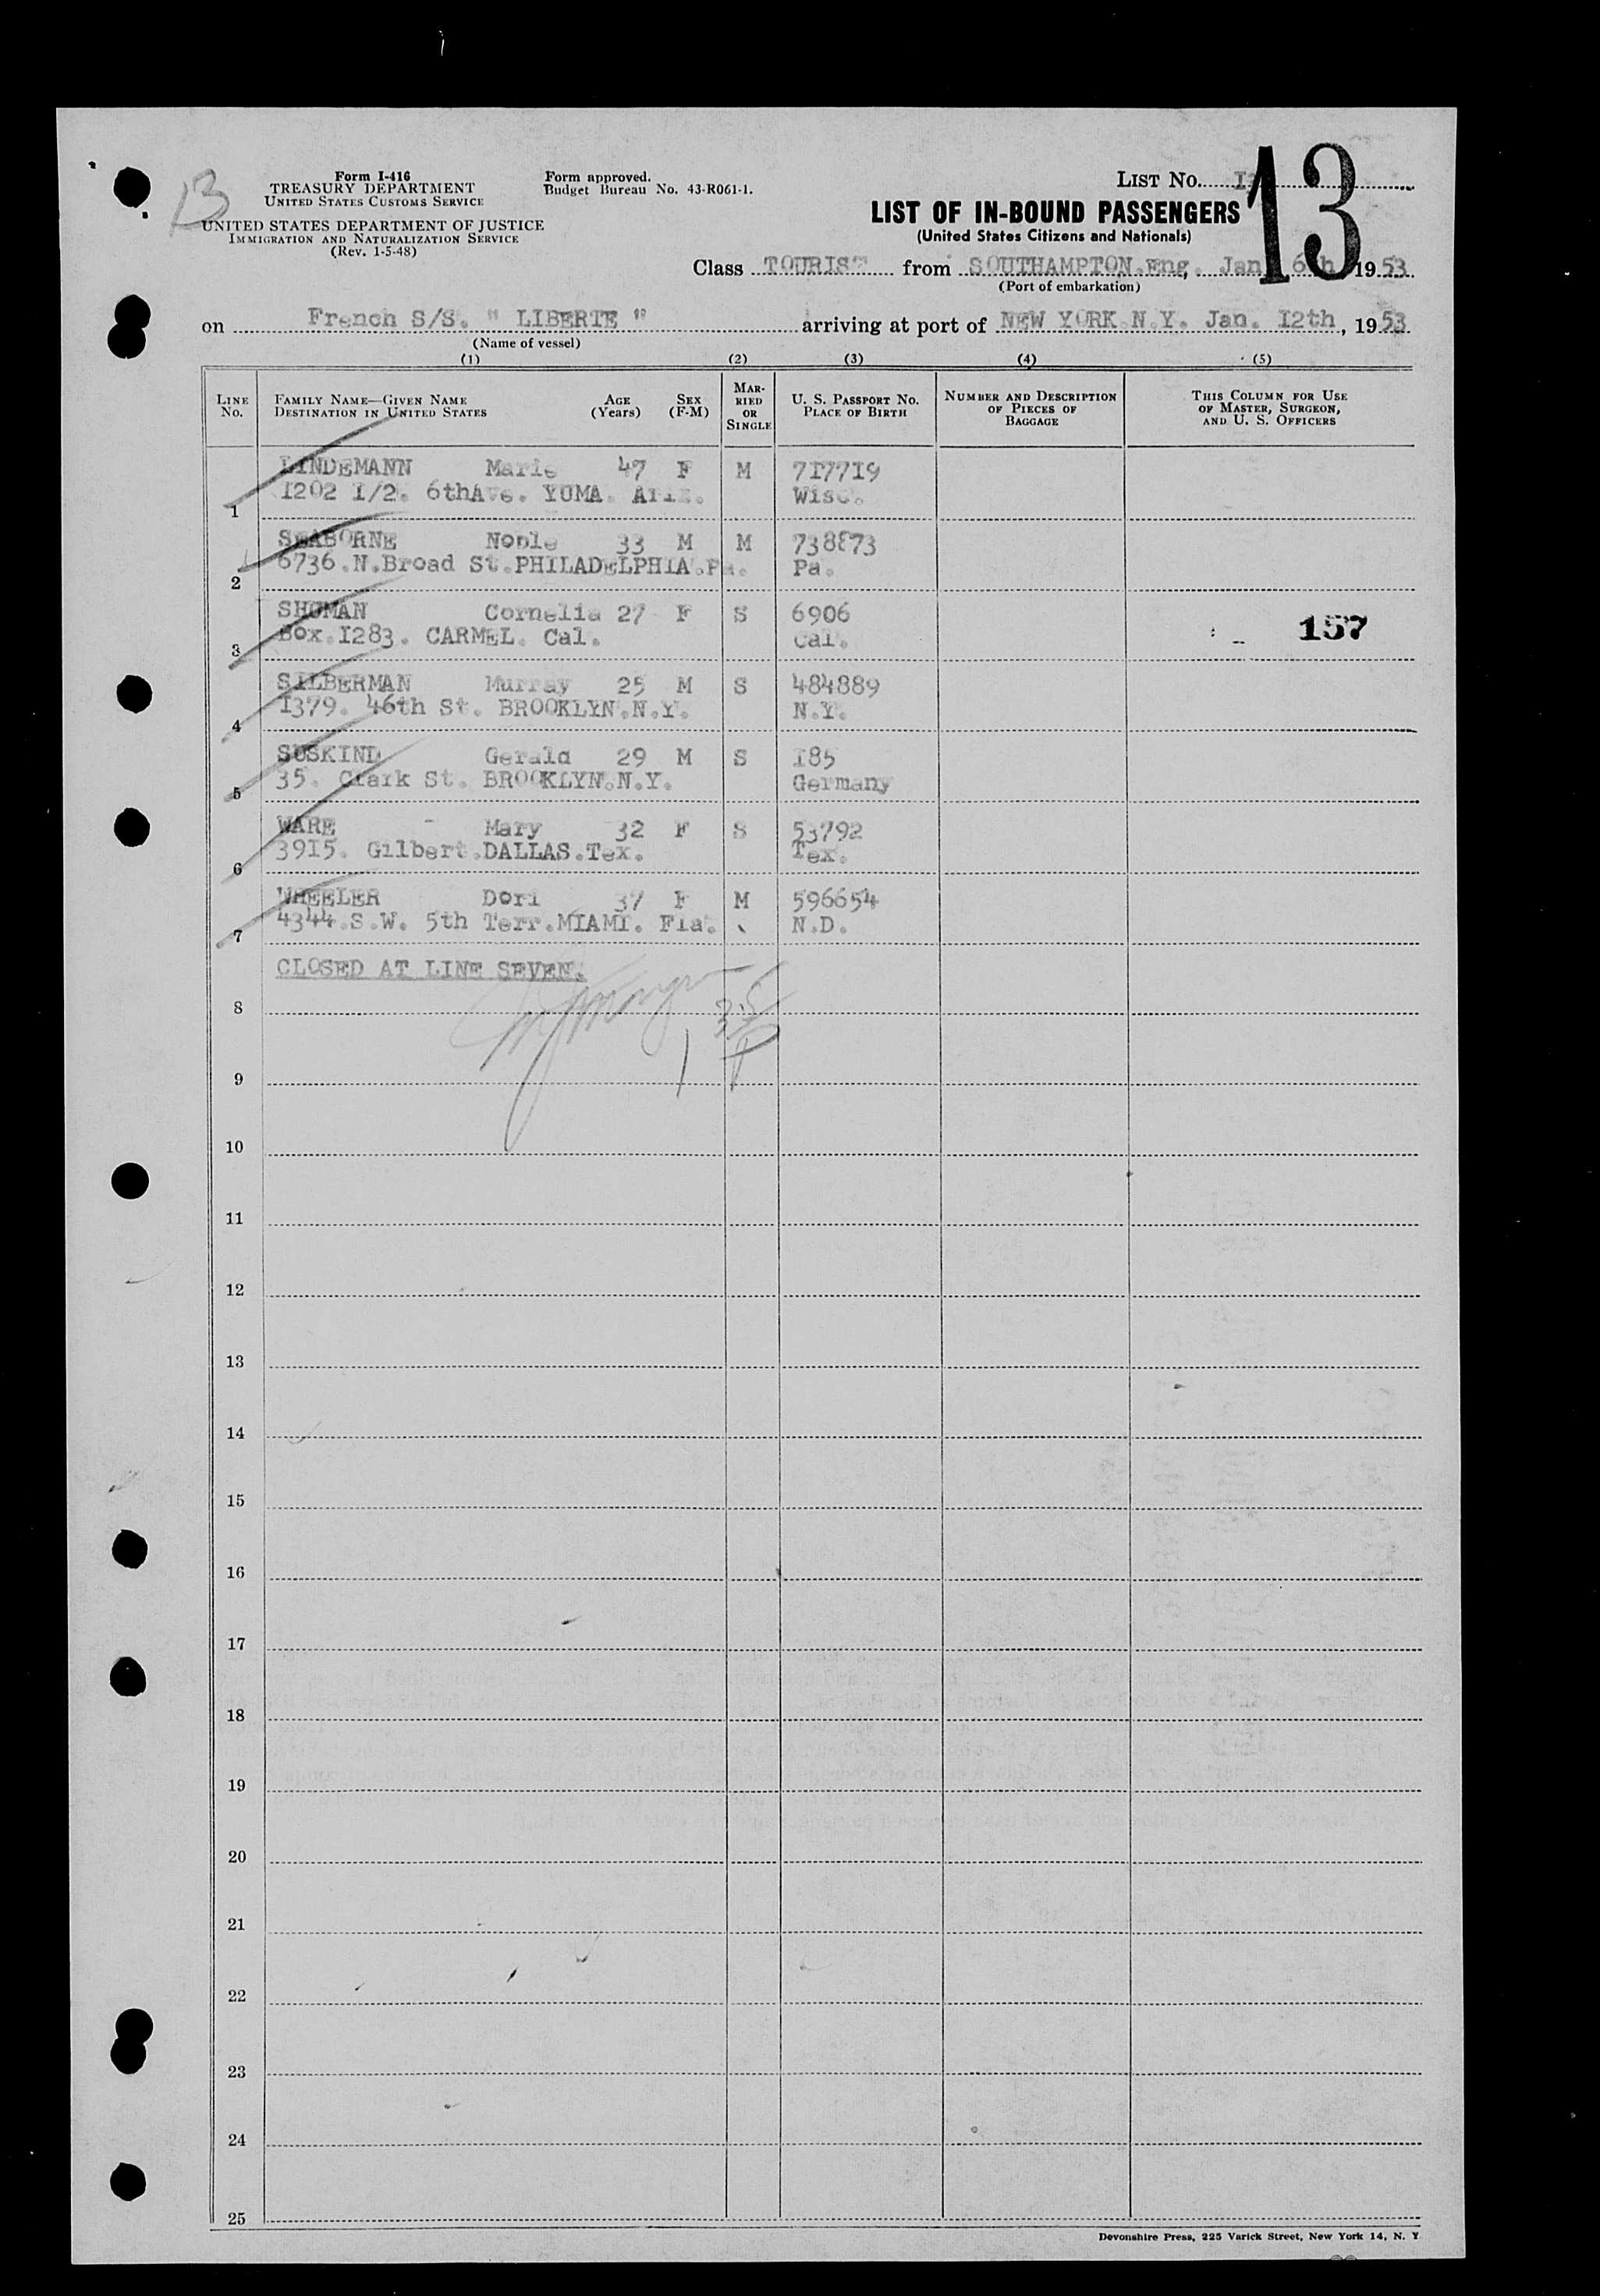 13
Form I-416
TREASURY DEPARTMENT
UNITED STATES CUSTOMS SERVICE
UNITED STATES DEPARTMENT OF JUSTICE
IMMIGRATION AND NATURALIZATION SERVICE
(Rev. 1-5-48)
Form approved.
Budget Bureau No. 43-R061-1.
LIST NO.
13
LIST OF IN-BOUND PASSENGERS
(United States Citizens and Nationals)
Class TOURIST from SOUTHAMPTON.Eng., Jan 6th 1953
(Port of embarkation)
on French S/S. " LIBERTE " arriving at port of NEW YORK.N.Y. Jan. I2th, 1953
(Name of vessel)
(1) (2) (3) (4) (5)
LINE NO. FAMILY NAME—GIVEN NAME DESTINATION IN UNITED STATES AGE (Years) SEX (F-M) MARRIED OR SINGLE U. S. PASSPORT NO. PLACE OF BIRTH NUMBER AND DESCRIPTION OF PIECES OF BAGGAGE THIS COLUMN FOR USE OF MASTER, SURGEON, AND U. S. OFFICERS
LINDEMANN Marie 47 F M 7I77I9
1 I202 I/2. 6thAve. YUMA. Ariz. Wisc.
SEABORNE Noble 33 M M 738873
2 6736.N.Broad St.PHILADELPHIA.Pa. Pa.
SHOMAN Cornelia 27 F S 6906
3 Box.I283. CARMEL. Cal. Cal. 157
SILBERMAN Murray 25 M S 484889
4 I379. 46th St. BROOKLYN.N.Y. N.Y.
SUSKIND Gerald 29 M S I85
5 35. Clark St. BROOKLYN.N.Y. Germany
WARE Mary 32 F S 53792
6 39I5. Gilbert.DALLAS.Tex. Tex.
WHEELER Dori 37 F M 596654
7 4344.S.W. 5th Terr.MIAMI. Fla. N.D.
CLOSED AT LINE SEVEN.
8
9
10
11
12
13
14
15
16
17
18
19
20
21
22
23
24
25
Devonshire Press, 225 Varick Street, New York 14, N. Y